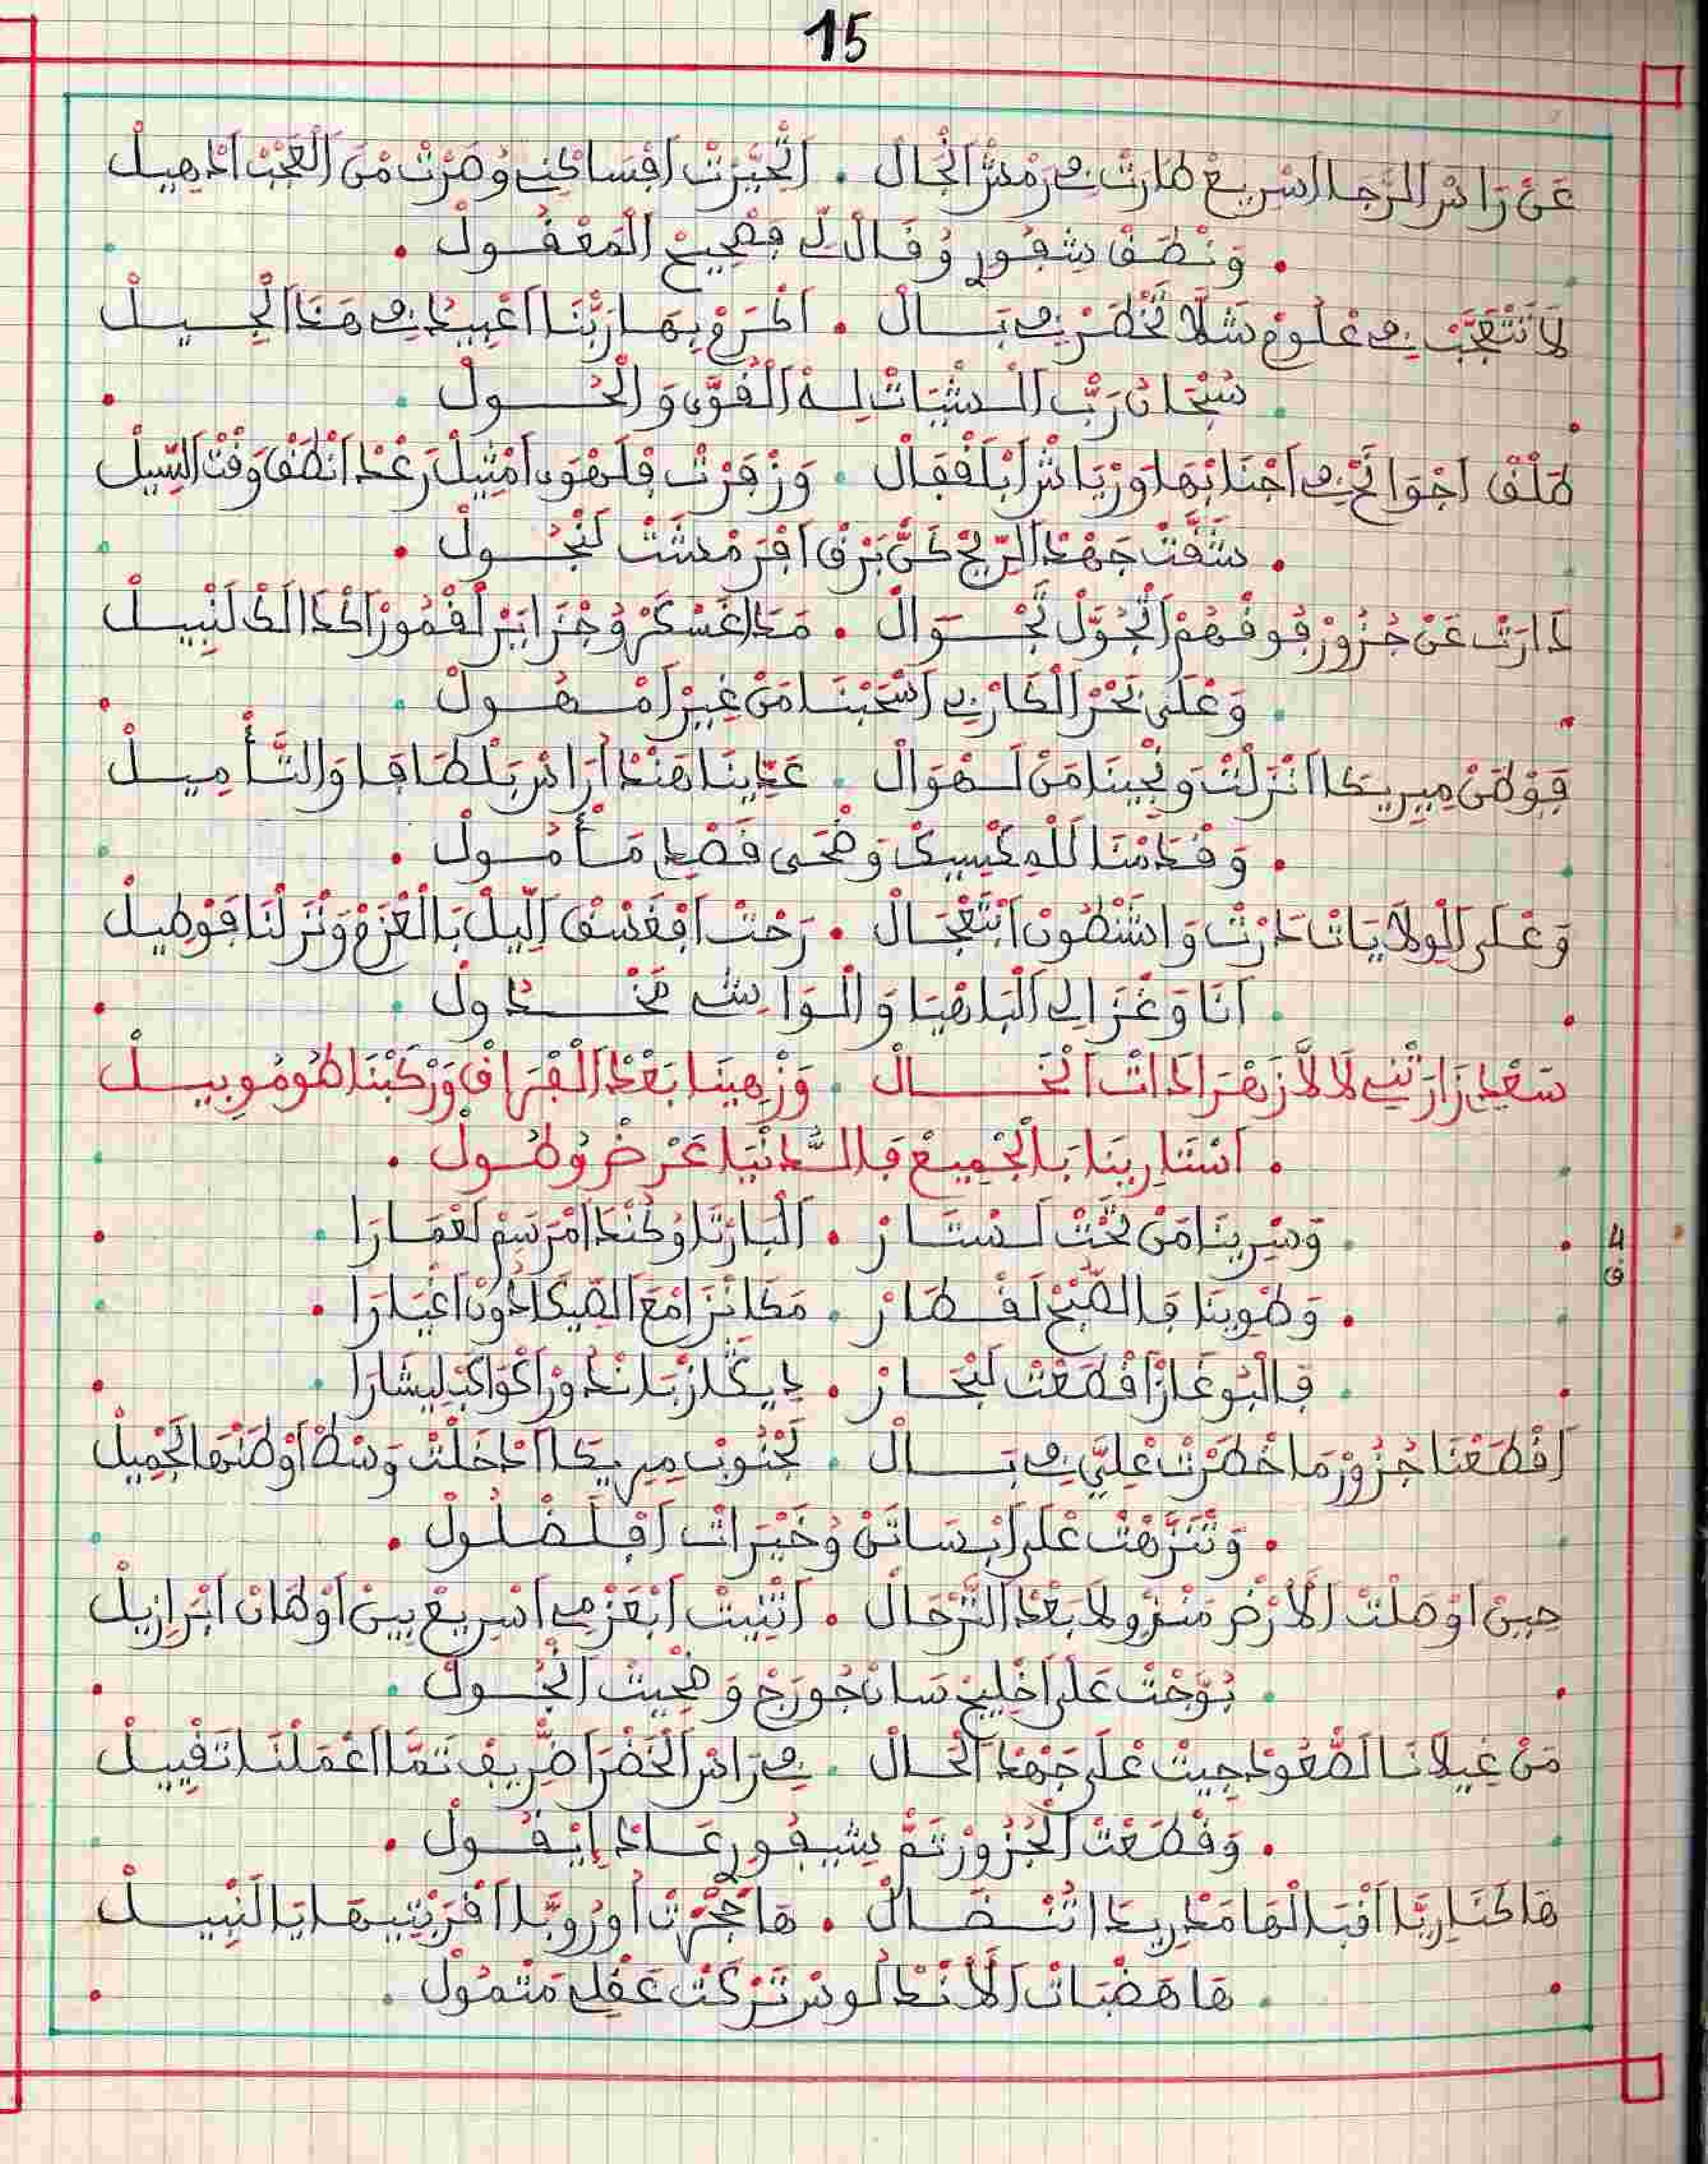 15
عَنْ رَاسْ الرّجَا اسْرِيعْ طَارَتْ فِي رَمْشْ الْحَالْ . اتْحَيّرْتْ افْسَاكْنِي وُصَرْتْ مْنْ الْعَجْبْ ادْهِيلْ
. وَنْطَقْ شِيفُورِي وُقَالْ لِي بَصْحِيحْ الْمَعْقُولْ .
لَا تَتْعَجّبْ فِي عْلُومْ شَلَّا تَخْطَرْ فِي بَالْ . اكْرَمْ بِهَا رَبّنَا اعْبِيدُ فِي هَذَا الْجِيلْ
. سُبْحَانْ رَبّ الْشْيَاتْ لِهْ الْقُوَّى وَالْحُولْ .
طَلْقْ اجْوَانَحْ فِي اجْنَابْهَا وَرْيَاشْ ابْلَقْفَالْ . وَزَفْرَتْ فَلَهْوَى امْثِيلْ رَعْدْ انْطَقْ وَقْتْ السِّيلْ
. شَقَّتْ جَهْدْ الرِّيحْ كَنّ بَرْقْ افْرَمْشَتْ لَنْجُولْ .
دَارَتْ عَنْ جْزُورْ فُوقْهُمْ اتْجُوّلْ تَجْوَالْ . مَدَاغَسْكَرْ وُجْزَايَرْ لَقْمُورْ اكْدَالَكْ لَنْبِيلْ
. وَعْلَى بَحْرْ الْكَارِيبِي اسْحَبْنَا مَنْ غِيرْ امْهُولْ .
فَوْطَنْ مِيرِيكَا انْزَلْتْ وَنْجِينَا مَنْ لَهْوَالْ . عَدِّينَا هَنْدْارَاسْ بَلْطَافَا وَالتَّأْمِيلْ
. وَقْدَمْنَا لَلْمِكْسِيكْ وَضْحَى قَصْدِي مَأْمُولْ .
وَعْلَى الْوِلَايَاتْ دَارْتْ وَاشَنْطُونْ ابْتَعْجَالْ . رَحْتْ افْغَسْقْ اللِّيلْ بَالْعَزْمْ وَنْزَلْنَا فَوْطِيلْ
. انَا وَغْزَالِي الْبَاهْيَا وَالْوَاشِي مَخْدُولْ .
سَعْدِي زَارَتْنِي لَالَّا زَهْرَا دَاتْ الْخَالْ . وَزْهِينَا بَعْدْ الْفْرَاقْ وَرْكَبْنَا طُومُوبِيلْ
. اسْتَارِينَا بَالْجْمِيعْ فَالدَّنْيَا عَرْضْ وُطُولْ .
. وَسْرِينَا مَنْ تَحْتْ لَسْتَارْ . الْبَارَتَا وُكَنْدَا امْرَسَمْ لَعْمَارَا .
4 ق
. وَطْوِينَا فَالصّبْحْ لَقْطَارْ . مَكَانْزْ امْعَ الصِّيكَا دُونْ اغْبَارَا .
. فَالْبُوغَازْ اقْطَعْتْ لَبْحَارْ . دِيكَلَارْ بَلَانْدُورْ اكْوَاكَبْ لِيشَارَا .
اقْطَعْنَا جْزُورْ مَا خَطْرَتْ عْلِيَّ فِي بَالْ . لَجْنُوبْ مِيرِيكَا ادْخَلْتْ وَسْطْ اوْطَنْهَا الْجْمِيلْ
. وَتْنَزّهْتْ عْلَى ابْسَاتَنْ وُخَيْرَاتْ افْلَضْلُولْ .
حِينْ اوْصَلْتْ الْأَرْضْ مَنْزُولَا بَعْدْ التَّرْحَالْ . اتْنِيتْ ابْعَزْمِي اسْرِيعْ بِينْ اوْطَانْ ابْرَازِيلْ
. بُوّجْتْ عَلَى اخْلِيجْ سَانْجُورْجْ وَضْحِيتْ انْجُولْ .
مَنْ غِيلَانَا لَصْعُودْ جِيتْ عْلَى جَهْدْ الْحَالْ . فِي رَاسْ الْخَضْرَا ضْرِيفْ تَمَّا اعْمَلْنَا تَقْيِيلْ
. وَقْطَعْتْ الْجْزُورْ تَمّ شِيفُورِي عَادْ إِيقُولْ .
هَا كْنَارِيَّا اقْبَالْهَا مَدِرِيدَا اتْنْضَالْ . هَا حُجْرَتْ اوُرُوبَّا اقْرَبْتِيهَا يَا لَنْبِيلْ
. هَا هَضْبَاتْ الْأَنْدَلُوسْ تَرْكَتْ عَقْلِي مَتْمُولْ .